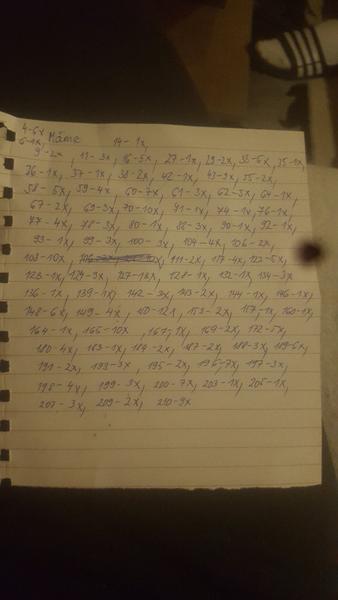 4-6x
6-1x, Máme 14-1x,
9-2x, 11-3x, 16-5x, 27-1x, 29-2x, 33-6x, 35-1x,
36-1x, 37-1x, 38-2x, 42-1x, 43-9x, 55-2x,
58-5x, 59-4x, 60-7x, 61-3x, 62-5x, 64-1x,
67-2x, 69-3x, 70-10x, 71-1x, 74-1x, 76-1x,
77-4x, 78-3x, 80-1x, 88-3x, 90-1x, 92-1x,
93-1x, 99-3x, 100-9x, 104-4x, 106-2x,
108-10x, 111-2x, 117-4x, 122-5x,
123-1x, 124-9x, 127-13x, 128-1x, 132-1x, 134-3x
136-1x, 139-1x, 142-3x, 143-2x, 144-1x, 146-1x,
148-6x, 149-4x, 150-12x, 153-2x, 157-1x, 160-1x,
164-1x, 165-10x, 167-1x, 169-2x, 172-5x,
180-4x, 183-1x, 184-2x, 187-2x, 188-3x, 189-6x,
191-2x, 193-3x, 195-2x, 196-7x, 197-3x,
198-4x, 199-3x, 200-7x, 203-1x, 205-1x,
207-3x, 209-2x, 210-9x